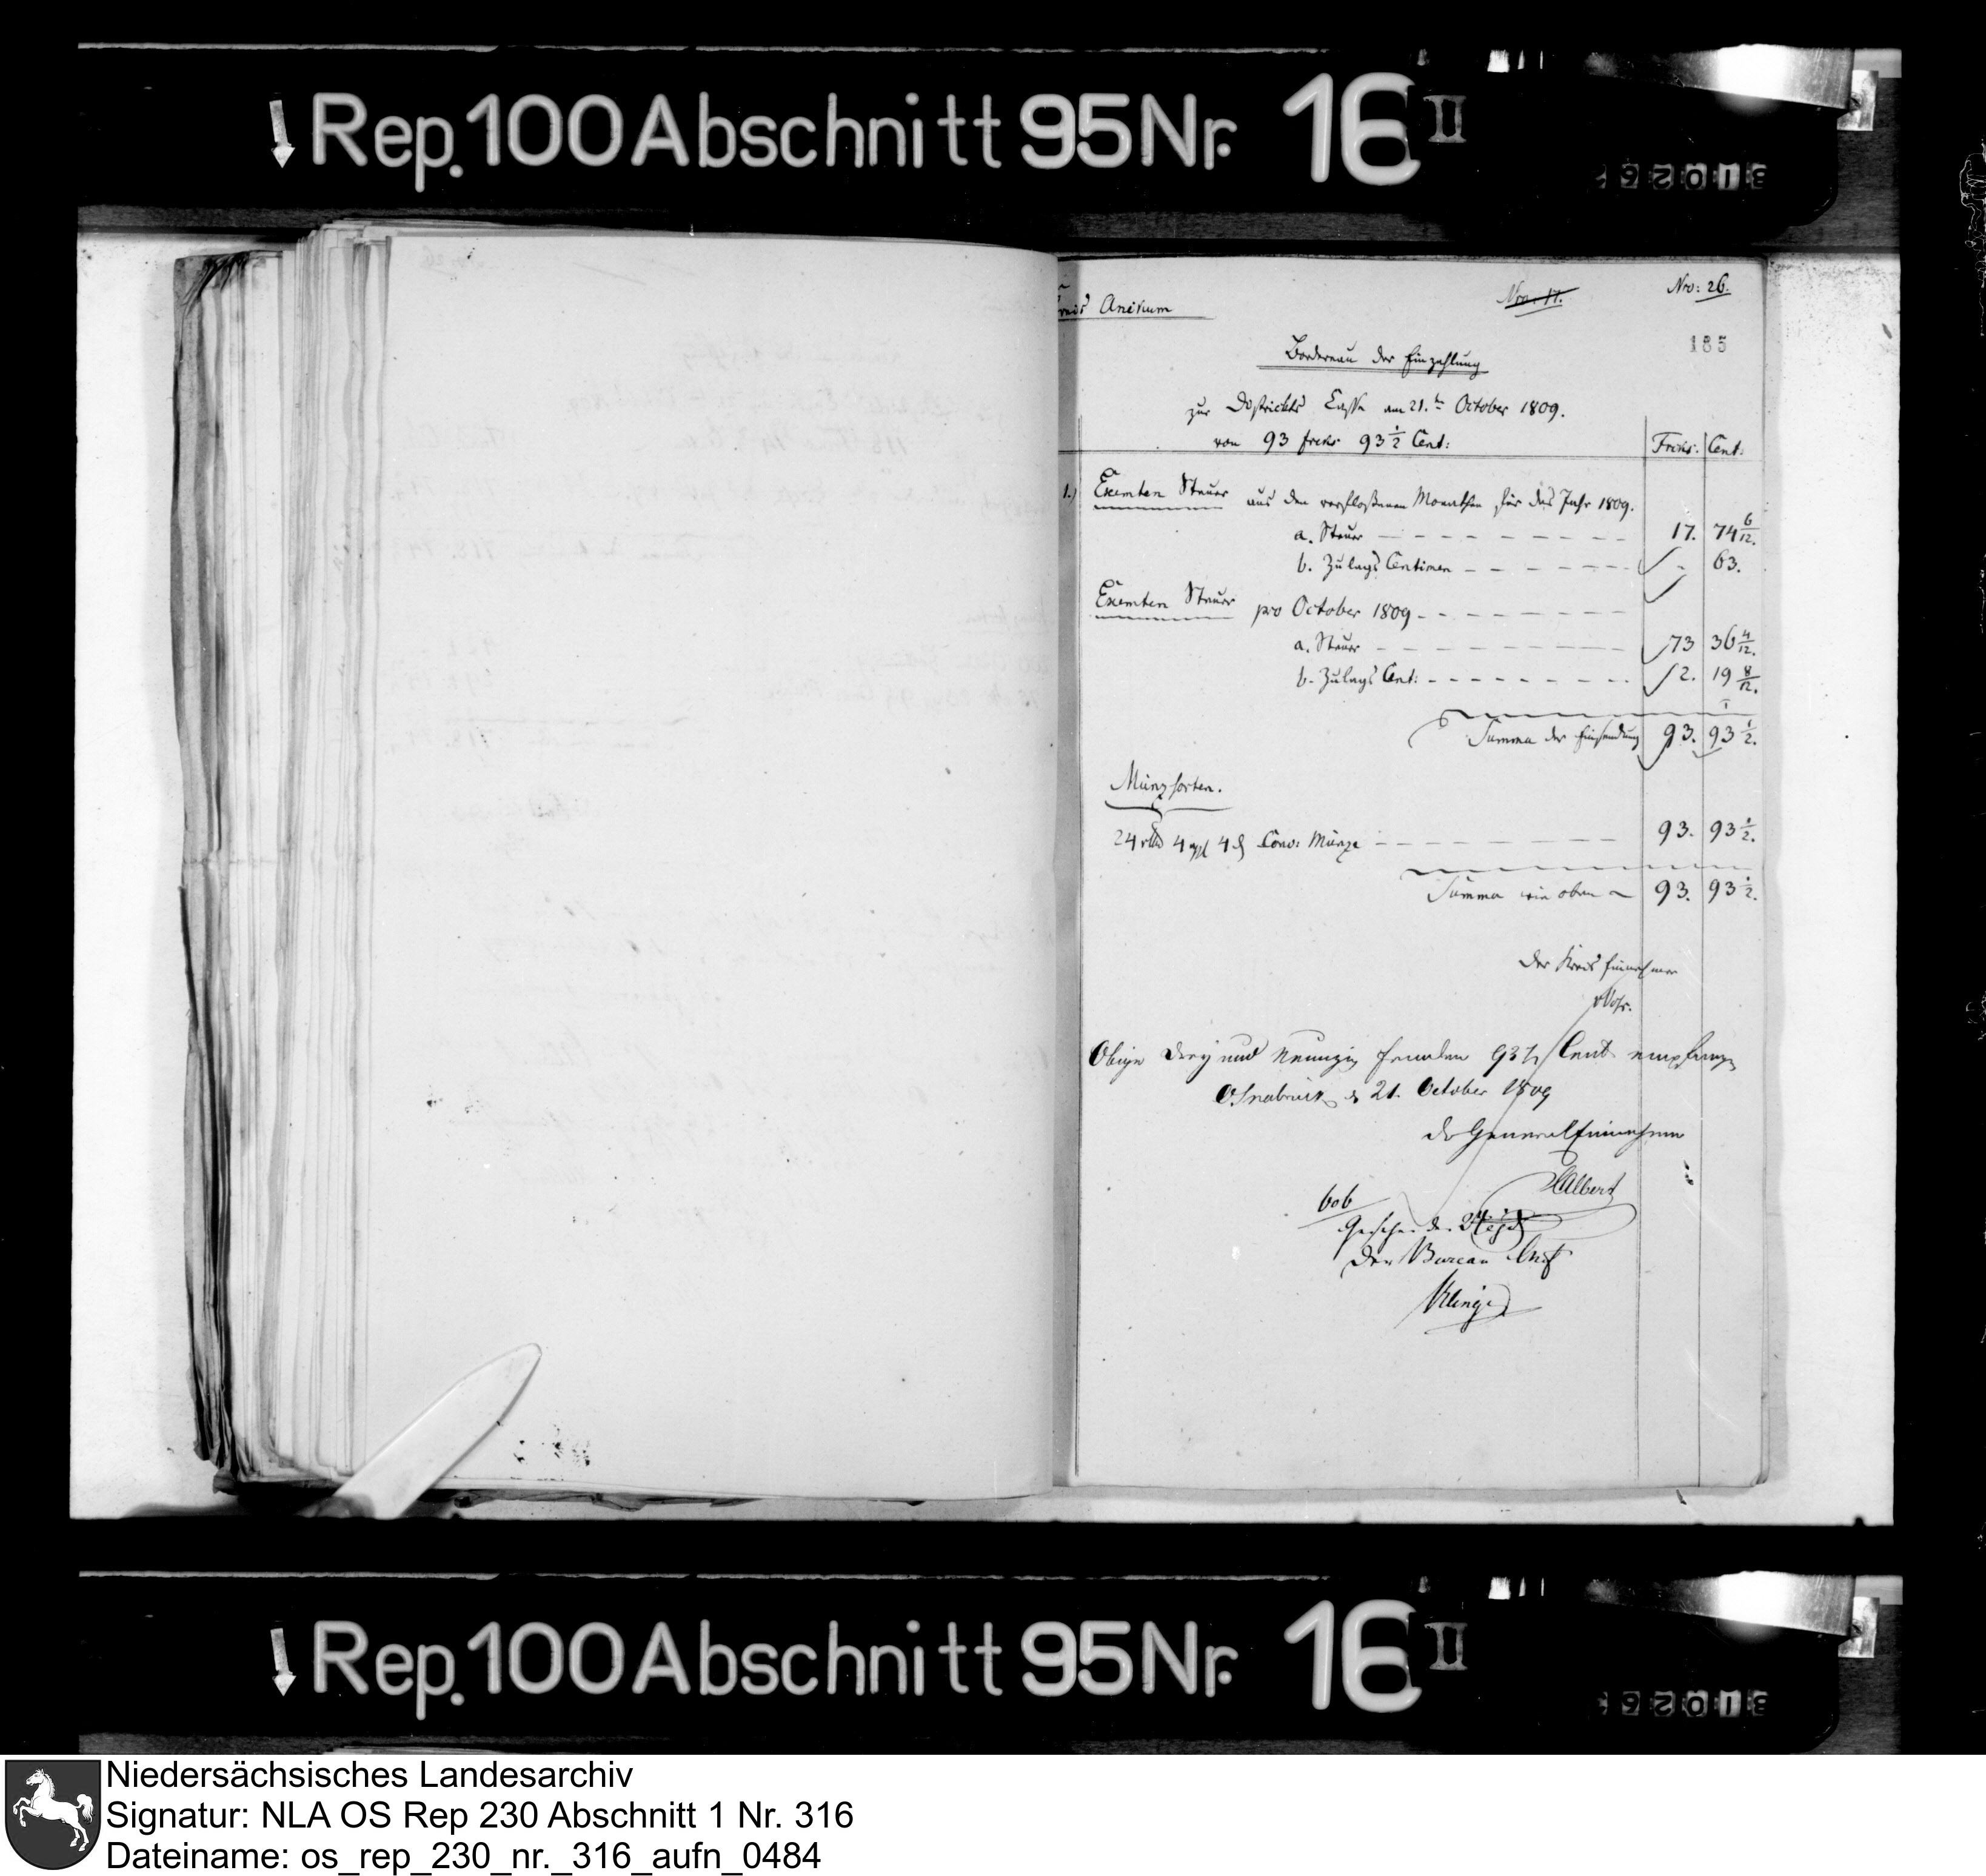 Rep. 100 Abschnitt 95 Nr. 16 II
Kreis Ankum
Nro: 17.
Nro: 26.
185
Bordereau der Einzahlung
zur Districkts Casse am 21.ten October 1809.
von 93 frcks 93 1/2 Cent:
Frcks: Cent:
1.) Exemten Steuer aus den verfloßenen Monathen für das Jahr 1809.
a. Steuer 17. 74 6/12.
b. Zulags Centimen - 63.
Exemten Steuer pro October 1809
a. Steuer 73 36 4/12.
b. Zulags Cent: 2. 19 8/12.
Summa der Einsendung 93. 93 1/2.
Münzsorten.
24 rth 4 ggl 4 d Conv: Münze 93. 93 1/2.
Summa wie oben 93. 93 1/2.
Der Kreis Einnehmer
Obige drey und Neunzig franken 93 1/2 Cent empfangen
Osnabrück d 21. October 1809
Dr General Einnehmer
Albert
606
Gesehen den
Der Bureau Chef
Klinge
Rep. 100 Abschnitt 95 Nr. 16 II
Niedersächsisches Landesarchiv
Signatur: NLA OS Rep 230 Abschnitt 1 Nr. 316
Dateiname: os_rep_230_nr._316_aufn_0484